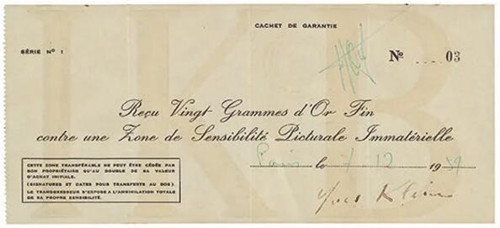 CACHET DE GARANTIE
SÉRIE Nº 1
Nº .... 03
Reçu Vingt Grammes d'Or Fin
contre une Zone de Sensibilité Picturale Immatérielle
Paris le 7 12 1959
CETTE ZONE TRANSFÉRABLE NE PEUT ÊTRE CÉDÉE PAR
SON PROPRIÉTAIRE QU'AU DOUBLE DE SA VALEUR
D'ACHAT INITIALE.
(SIGNATURES ET DATES POUR TRANSFERTS AU DOS).
LE TRANSGRESSEUR S'EXPOSE A L'ANNIHILATION TOTALE
DE SA PROPRE SENSIBILITÉ.
Yves Klein
IKB